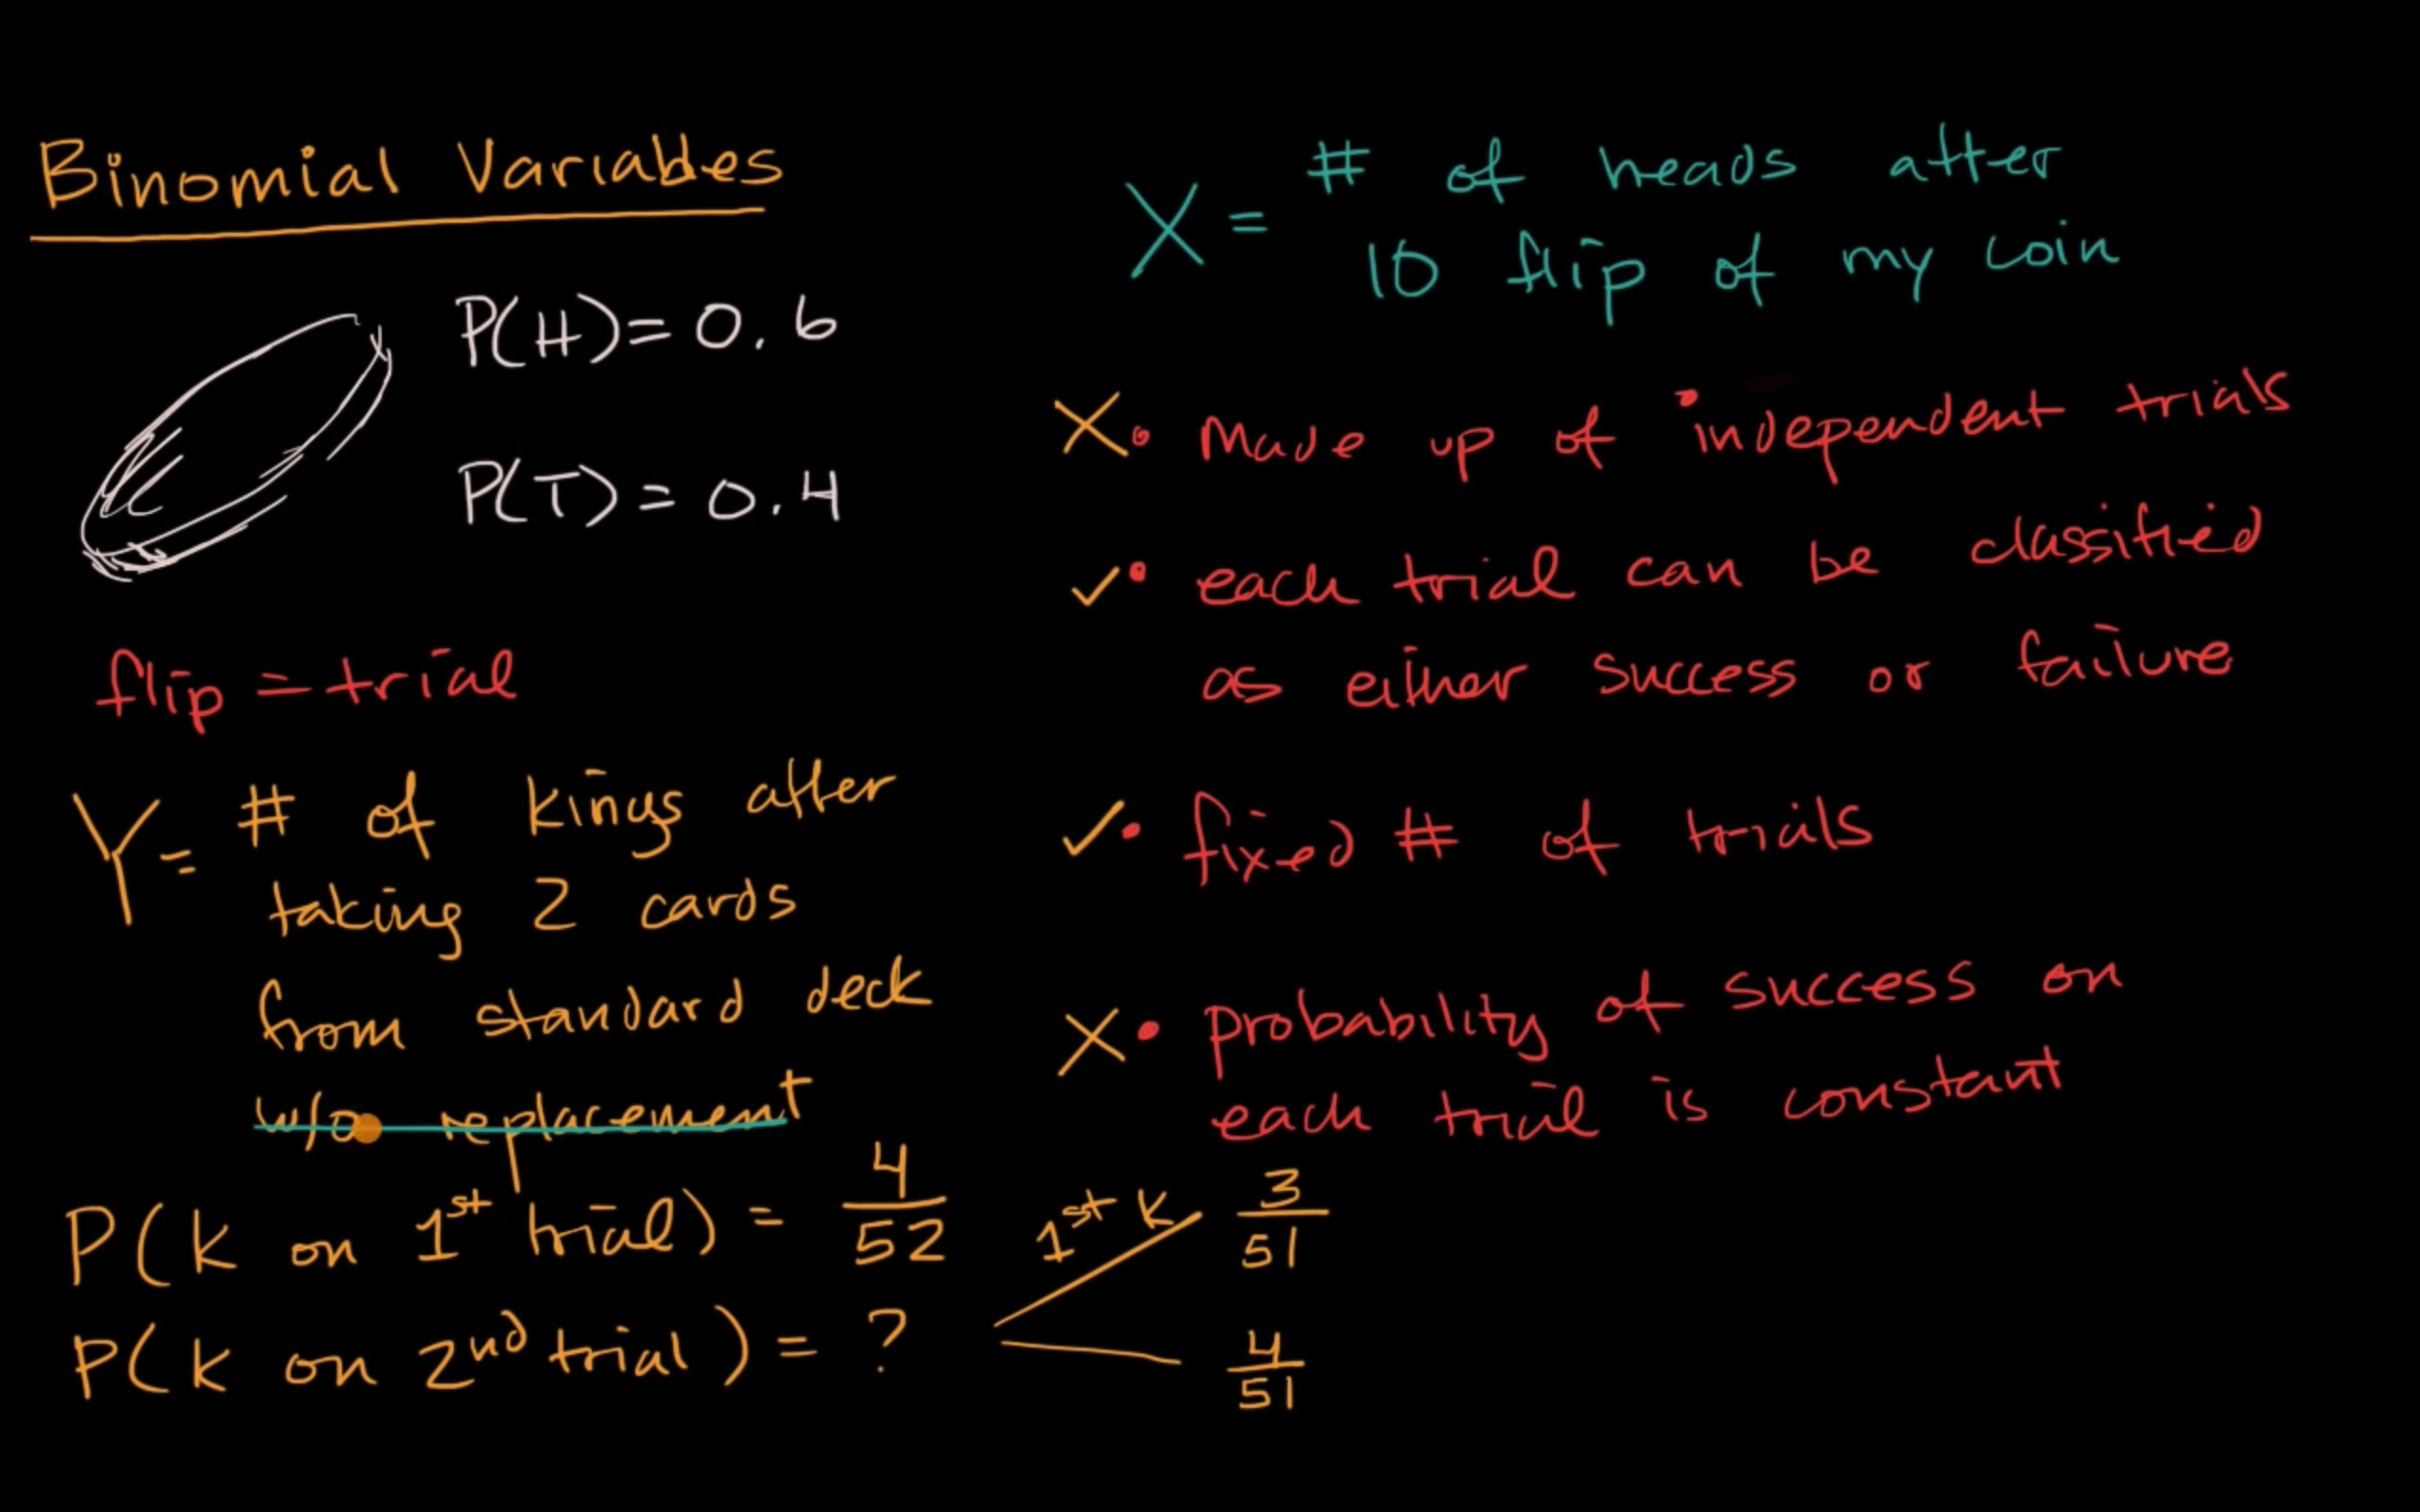 Binomial Variables
P(H) = 0.6
P(T) = 0.4
flip = trial
Y = # of kings after
taking 2 cards
from standard deck
w/o replacement
P(K on 1st trial) = 4/52
P(K on 2nd trial) = ?
1st K 3/51
4/51
X = # of heads after
10 flip of my coin
X • Made up of independent trials
✓ • each trial can be classified
as either success or failure
✓ • fixed # of trials
X • probability of success on
each trial is constant